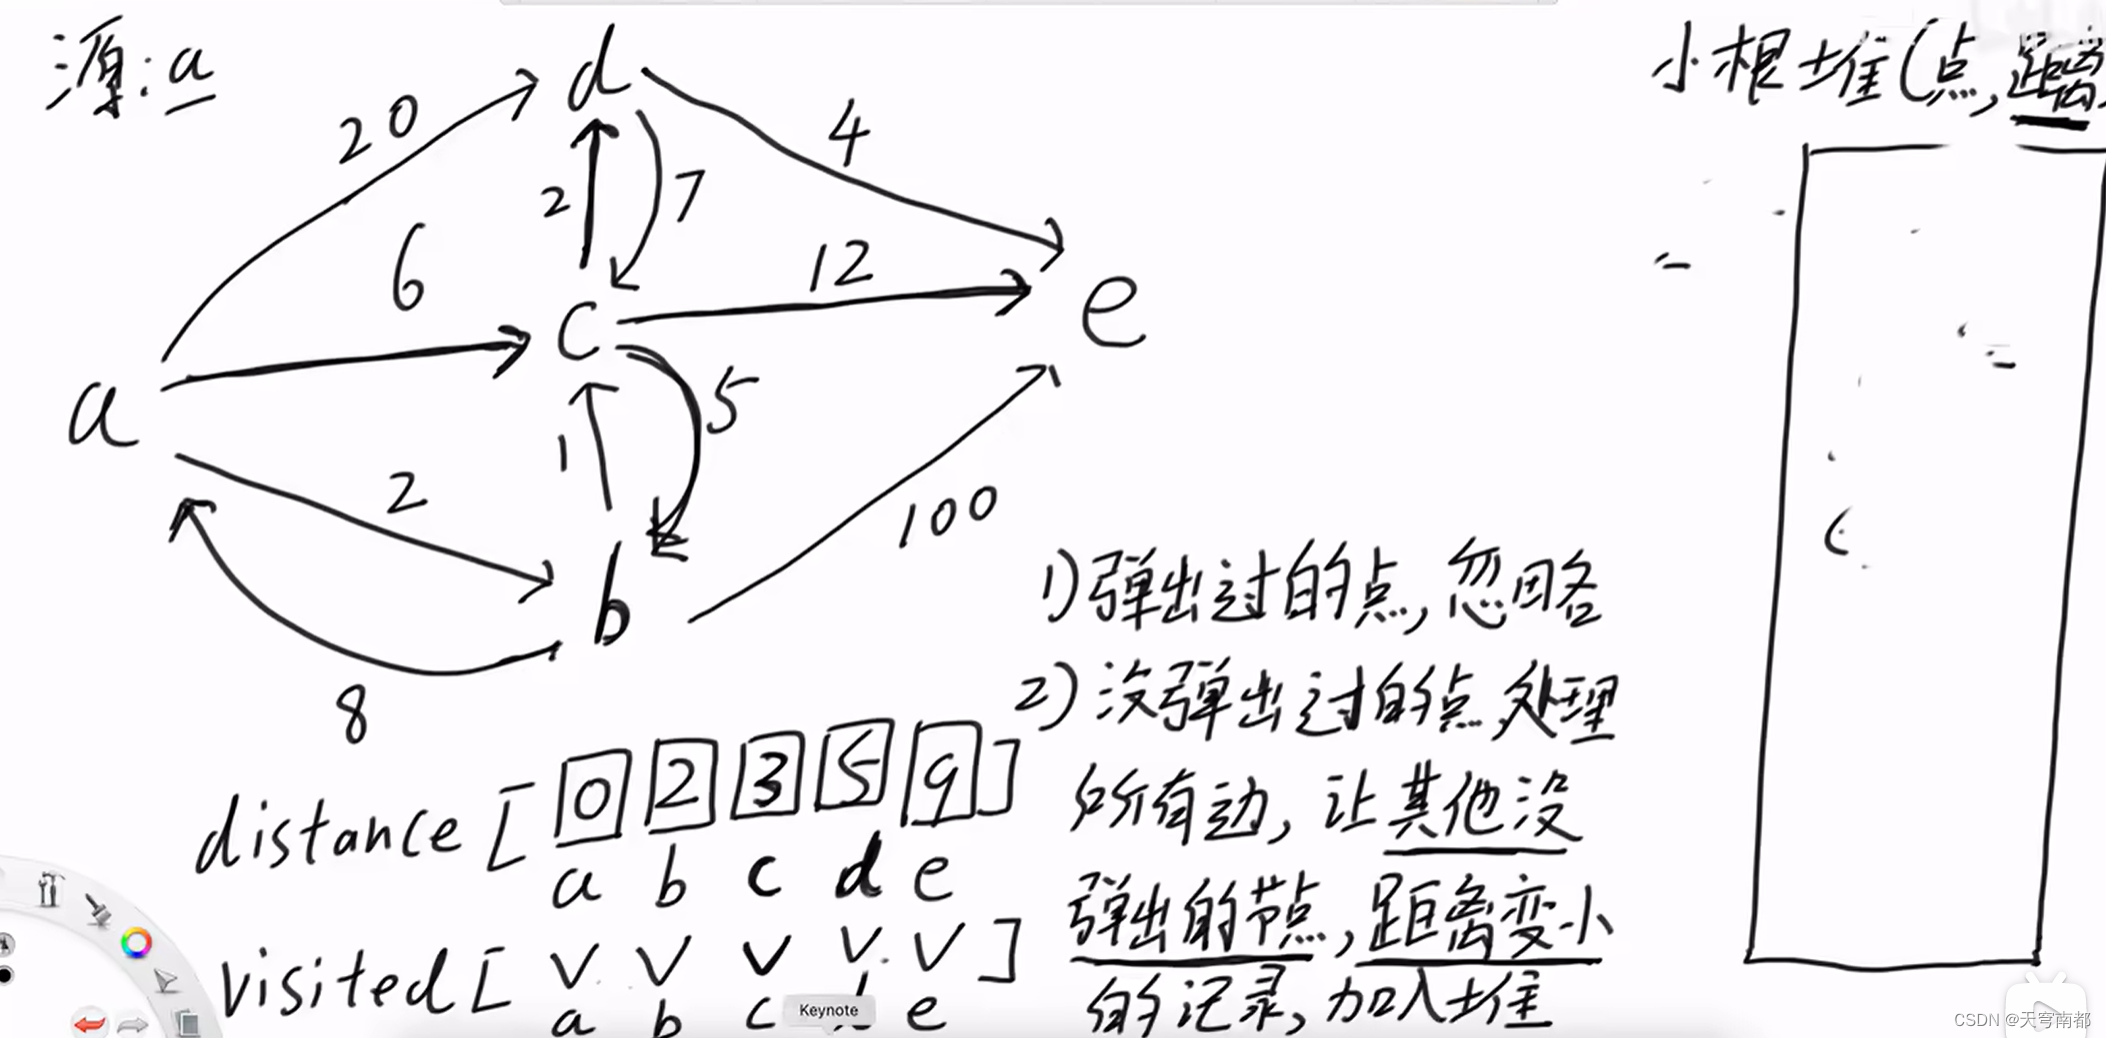 源:a
小根堆(点,距离
20
d
4
2
7
6
12
c
e
a
5
1
2
100
b
8
1)弹出过的点,忽略
2)没弹出过的点,处理
所有边,让其他没
弹出的节点,距离变小
的记录,加入堆
distance [ 0 2 3 5 9 ]
a b c d e
visited [ v v v v v ]
a b c d e
Keynote
CSDN @天穹南都